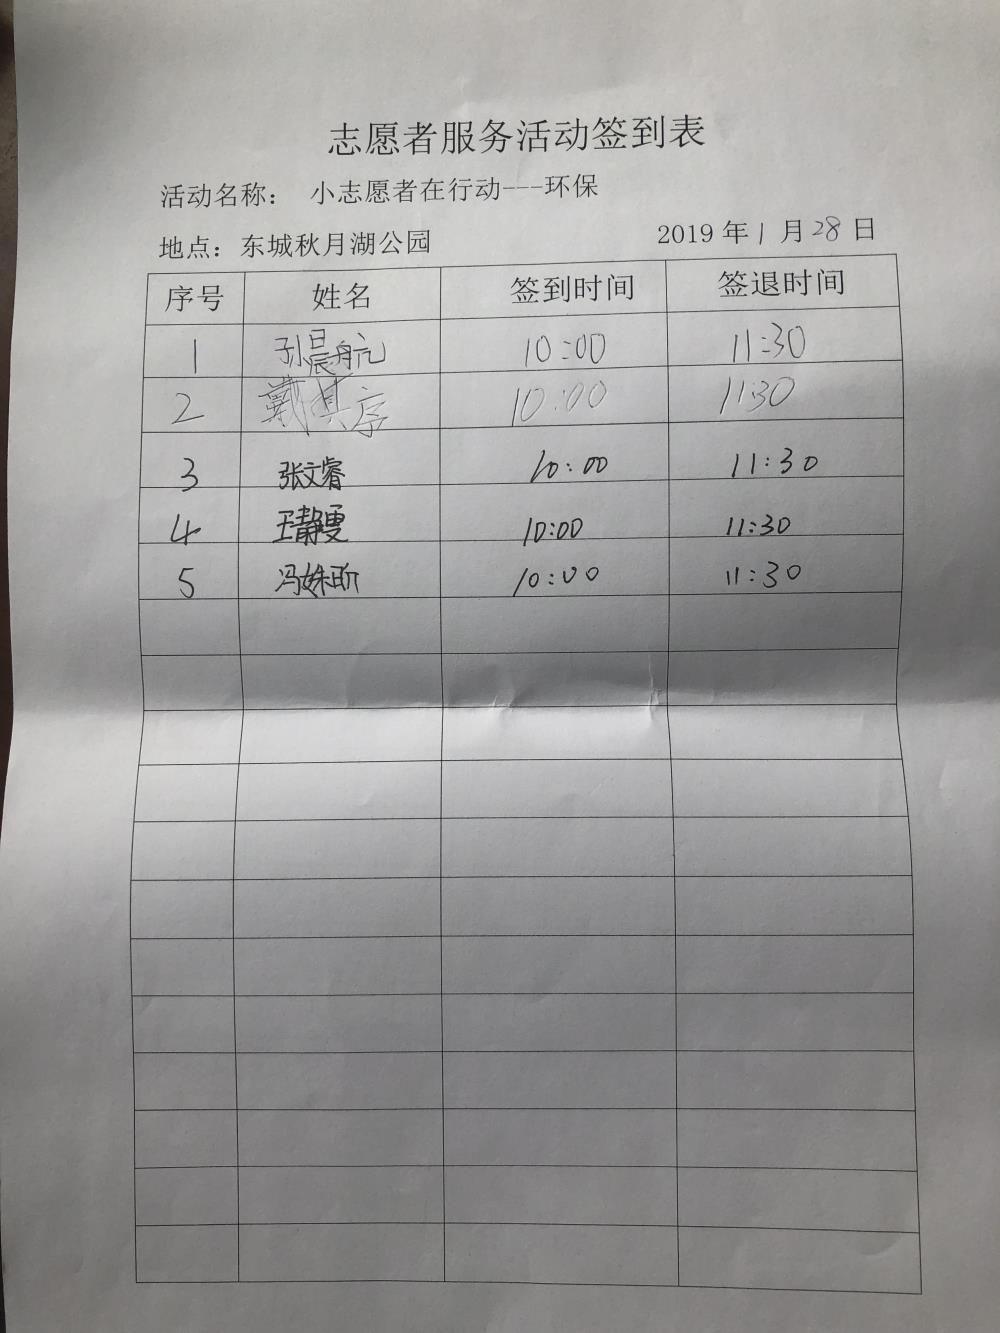 志愿者服务活动签到表
活动名称： 小志愿者在行动---环保
地点：东城秋月湖公园 2019 年 1 月 28 日
序号 姓名 签到时间 签退时间
1 孙晨航 10:00 11:30
2 戴其序 10:00 11:30
3 张文睿 10:00 11:30
4 王静雯 10:00 11:30
5 冯姝昕 10:00 11:30